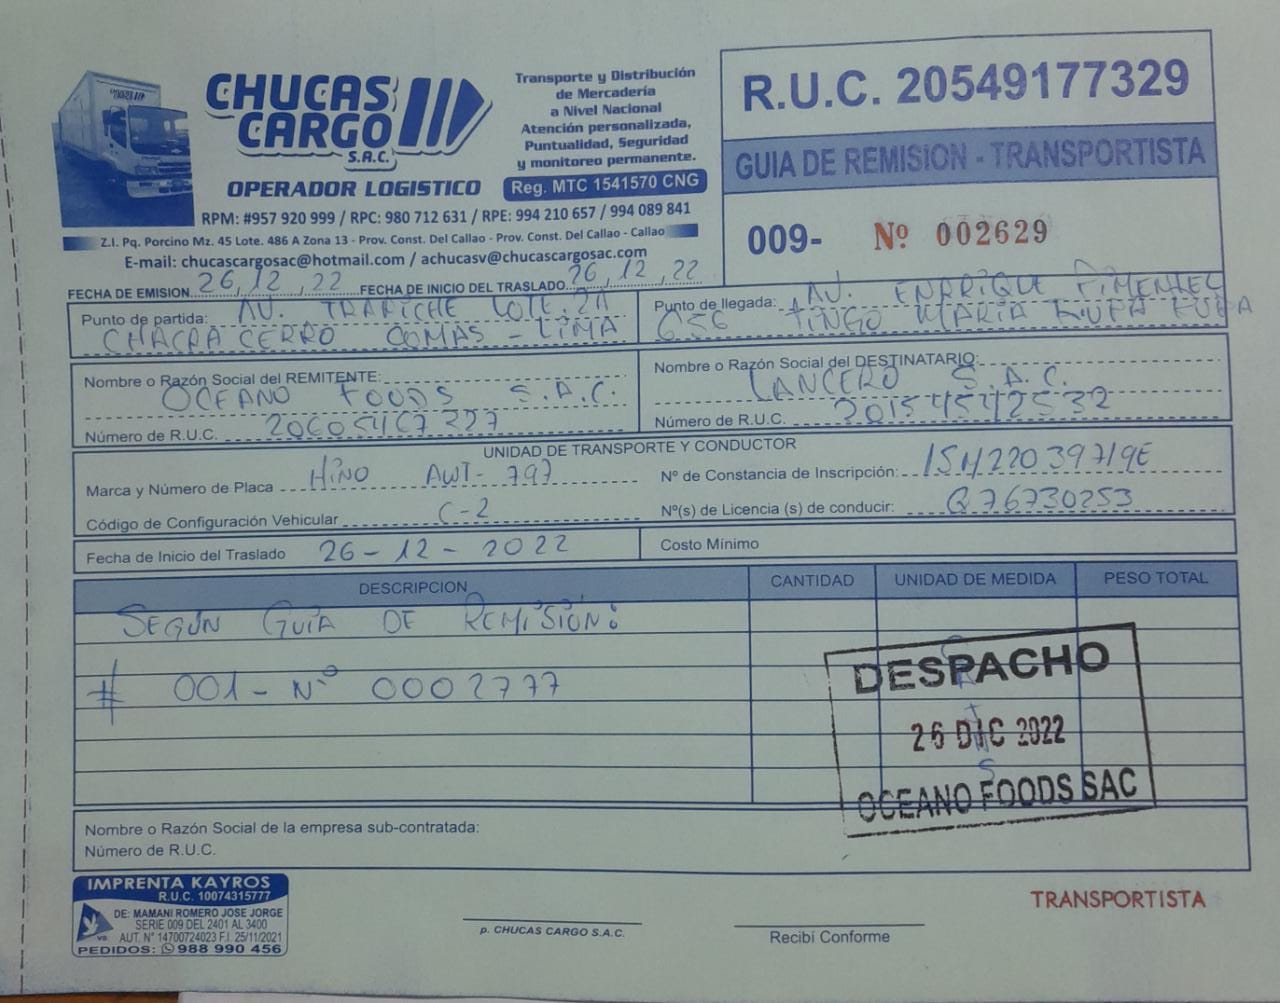 CHUCAS CARGO S.A.C.
OPERADOR LOGISTICO
Transporte y Distribución
de Mercadería
a Nivel Nacional
Atención personalizada,
Puntualidad, Seguridad
y monitoreo permanente.
Reg. MTC 1541570 CNG
RPM: #957 920 999 / RPC: 980 712 631 / RPE: 994 210 657 / 994 089 841
Z.I. Pq. Porcino Mz. 45 Lote. 486 A Zona 13 - Prov. Const. Del Callao - Prov. Const. Del Callao - Callao
E-mail: chucascargosac@hotmail.com / achucasv@chucascargosac.com
R.U.C. 20549177329
GUIA DE REMISION - TRANSPORTISTA
009- Nº 002629
FECHA DE EMISION 26, 12, 22 FECHA DE INICIO DEL TRASLADO: 26, 12, 22
Punto de partida: AV. TRAPICHE LOTE. 2A
CHACRA CERRO COMAS - LIMA
Punto de llegada: AV. ENRRIQUE PIMENTEL
656 TINGO MARIA RUPA RUPA
Nombre o Razón Social del REMITENTE:
OCEANO FOODS S.A.C.
Número de R.U.C. 20605467327
Nombre o Razón Social del DESTINATARIO:
LANCERO S.A.C.
Número de R.U.C.
UNIDAD DE TRANSPORTE Y CONDUCTOR
Marca y Número de Placa HINO AWT-797
Nº de Constancia de Inscripción: 15M22039719E
Código de Configuración Vehicular C-2
Nº(s) de Licencia (s) de conducir: Q76730253
Fecha de Inicio del Traslado 26-12-2022
Costo Mínimo
DESCRIPCION CANTIDAD UNIDAD DE MEDIDA PESO TOTAL
SEGÚN GUÍA DE REMISIÓN:
# 001 - Nº 0002777
DESPACHO
26 DIC 2022
OCEANO FOODS SAC
Nombre o Razón Social de la empresa sub-contratada:
Número de R.U.C.
IMPRENTA KAYROS
R.U.C. 10074315777
DE: MAMANI ROMERO JOSE JORGE
SERIE 009 DEL 2401 AL 3400
AUT. N° 14700724023 F.I. 25/11/2021
PEDIDOS: 988 990 456
p. CHUCAS CARGO S.A.C.
Recibí Conforme
TRANSPORTISTA